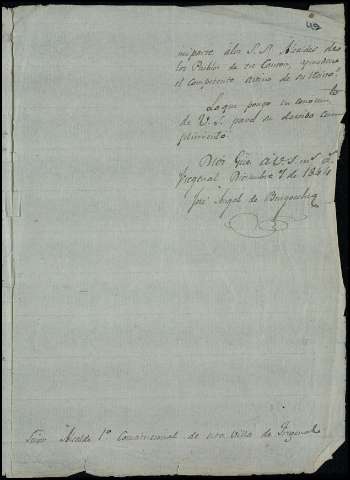 49
mi parte a los S. S. Alcaldes de
los Pueblos de su Canton,
el competente aviso de su
Lo que pongo en conocim.to
de V. S. para su devido cum
plimiento.
Dios Gue. a V. S. m.s a.s
Fregenal Diciembre 7 de 1844
José Angel de
Señor Alcalde 1º Constitucional de esta Villa de Fregenal